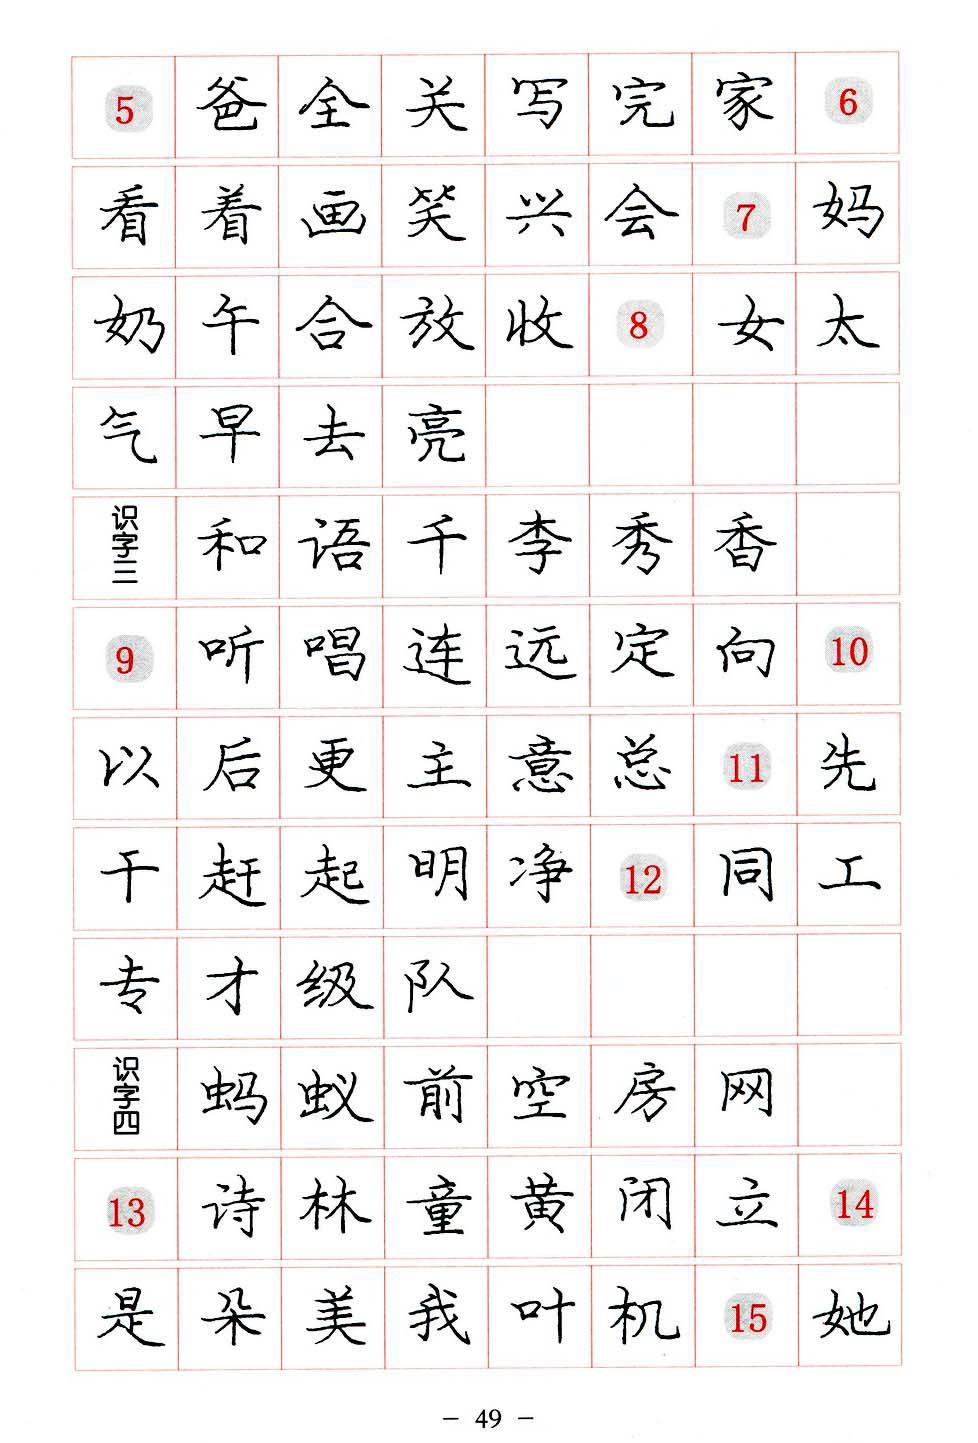 5 爸 全 关 写 完 家 6
看 着 画 笑 兴 会 7 妈
奶 午 合 放 收 8 女 太
气 早 去 亮
识字三 和 语 千 李 秀 香
9 听 唱 连 远 定 向 10
以 后 更 主 意 总 11 先
干 赶 起 明 净 12 同 工
专 才 级 队
识字四 蚂 蚁 前 空 房 网
13 诗 林 童 黄 闭 立 14
是 朵 美 我 叶 机 15 她
- 49 -